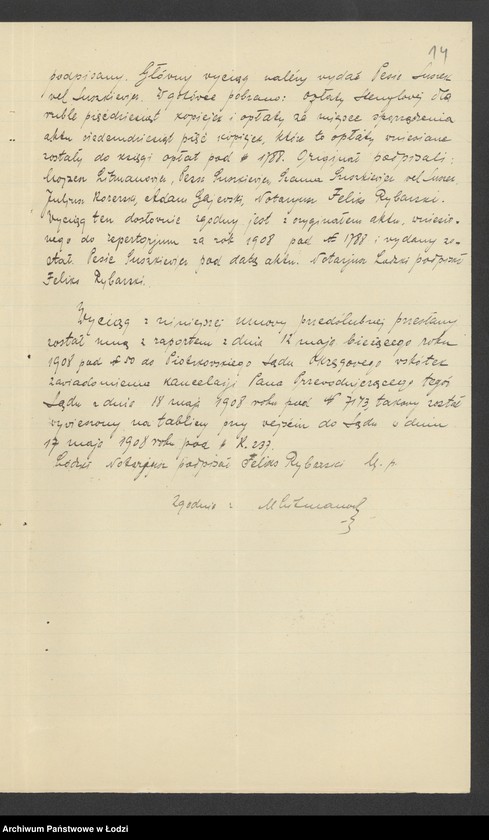 14
podpisany. Główny wyciąg należy wydać Pesie Luszer
vel Luszkiewicz. Dopłacone pobrano: opłaty stemplowej dwa
ruble pięćdziesiąt kopiejek i opłaty za miejsce sporządzenia
aktu siedemdziesiąt pięć kopiejek, które to opłaty wniesione
zostały do księgi opłat pod # 1788. Oryginał podpisali:
Litmanowicz, Pesse Guszkiewicz, Szama Guszkiewicz vel
Juljusz Adam Gajewski, Notarjusz Feliks Rybarski.
Wyciąg ten dosłownie zgodny jest z oryginałem aktu, wniesio-
nego do repertorjum za rok 1908 pod # 1788 i wydany zo-
stał Pesie Guszkiewicz pod datą aktu. Notarjusz Łódzki podpisał
Feliks Rybarski.
Wyciąg z niniejszej umowy przedślubnej przesłany
został mną z raportem z dnia 12 maja bieżącego roku
1908 pod # 50 do Piotrkowskiego Sądu Okręgowego wskutek
zawiadomienia kancelarji Pana Przewodniczącego tegoż
Sądu z dnia 18 maja 1908 roku pod # 7173, takowy został
wywieszony na tablicy przy wejściu do Sądu w dniu
17 maja 1908 roku pod # K. 237.
Łódzki Notarjusz podpisał Feliks Rybarski m. p.
Zgodnie: